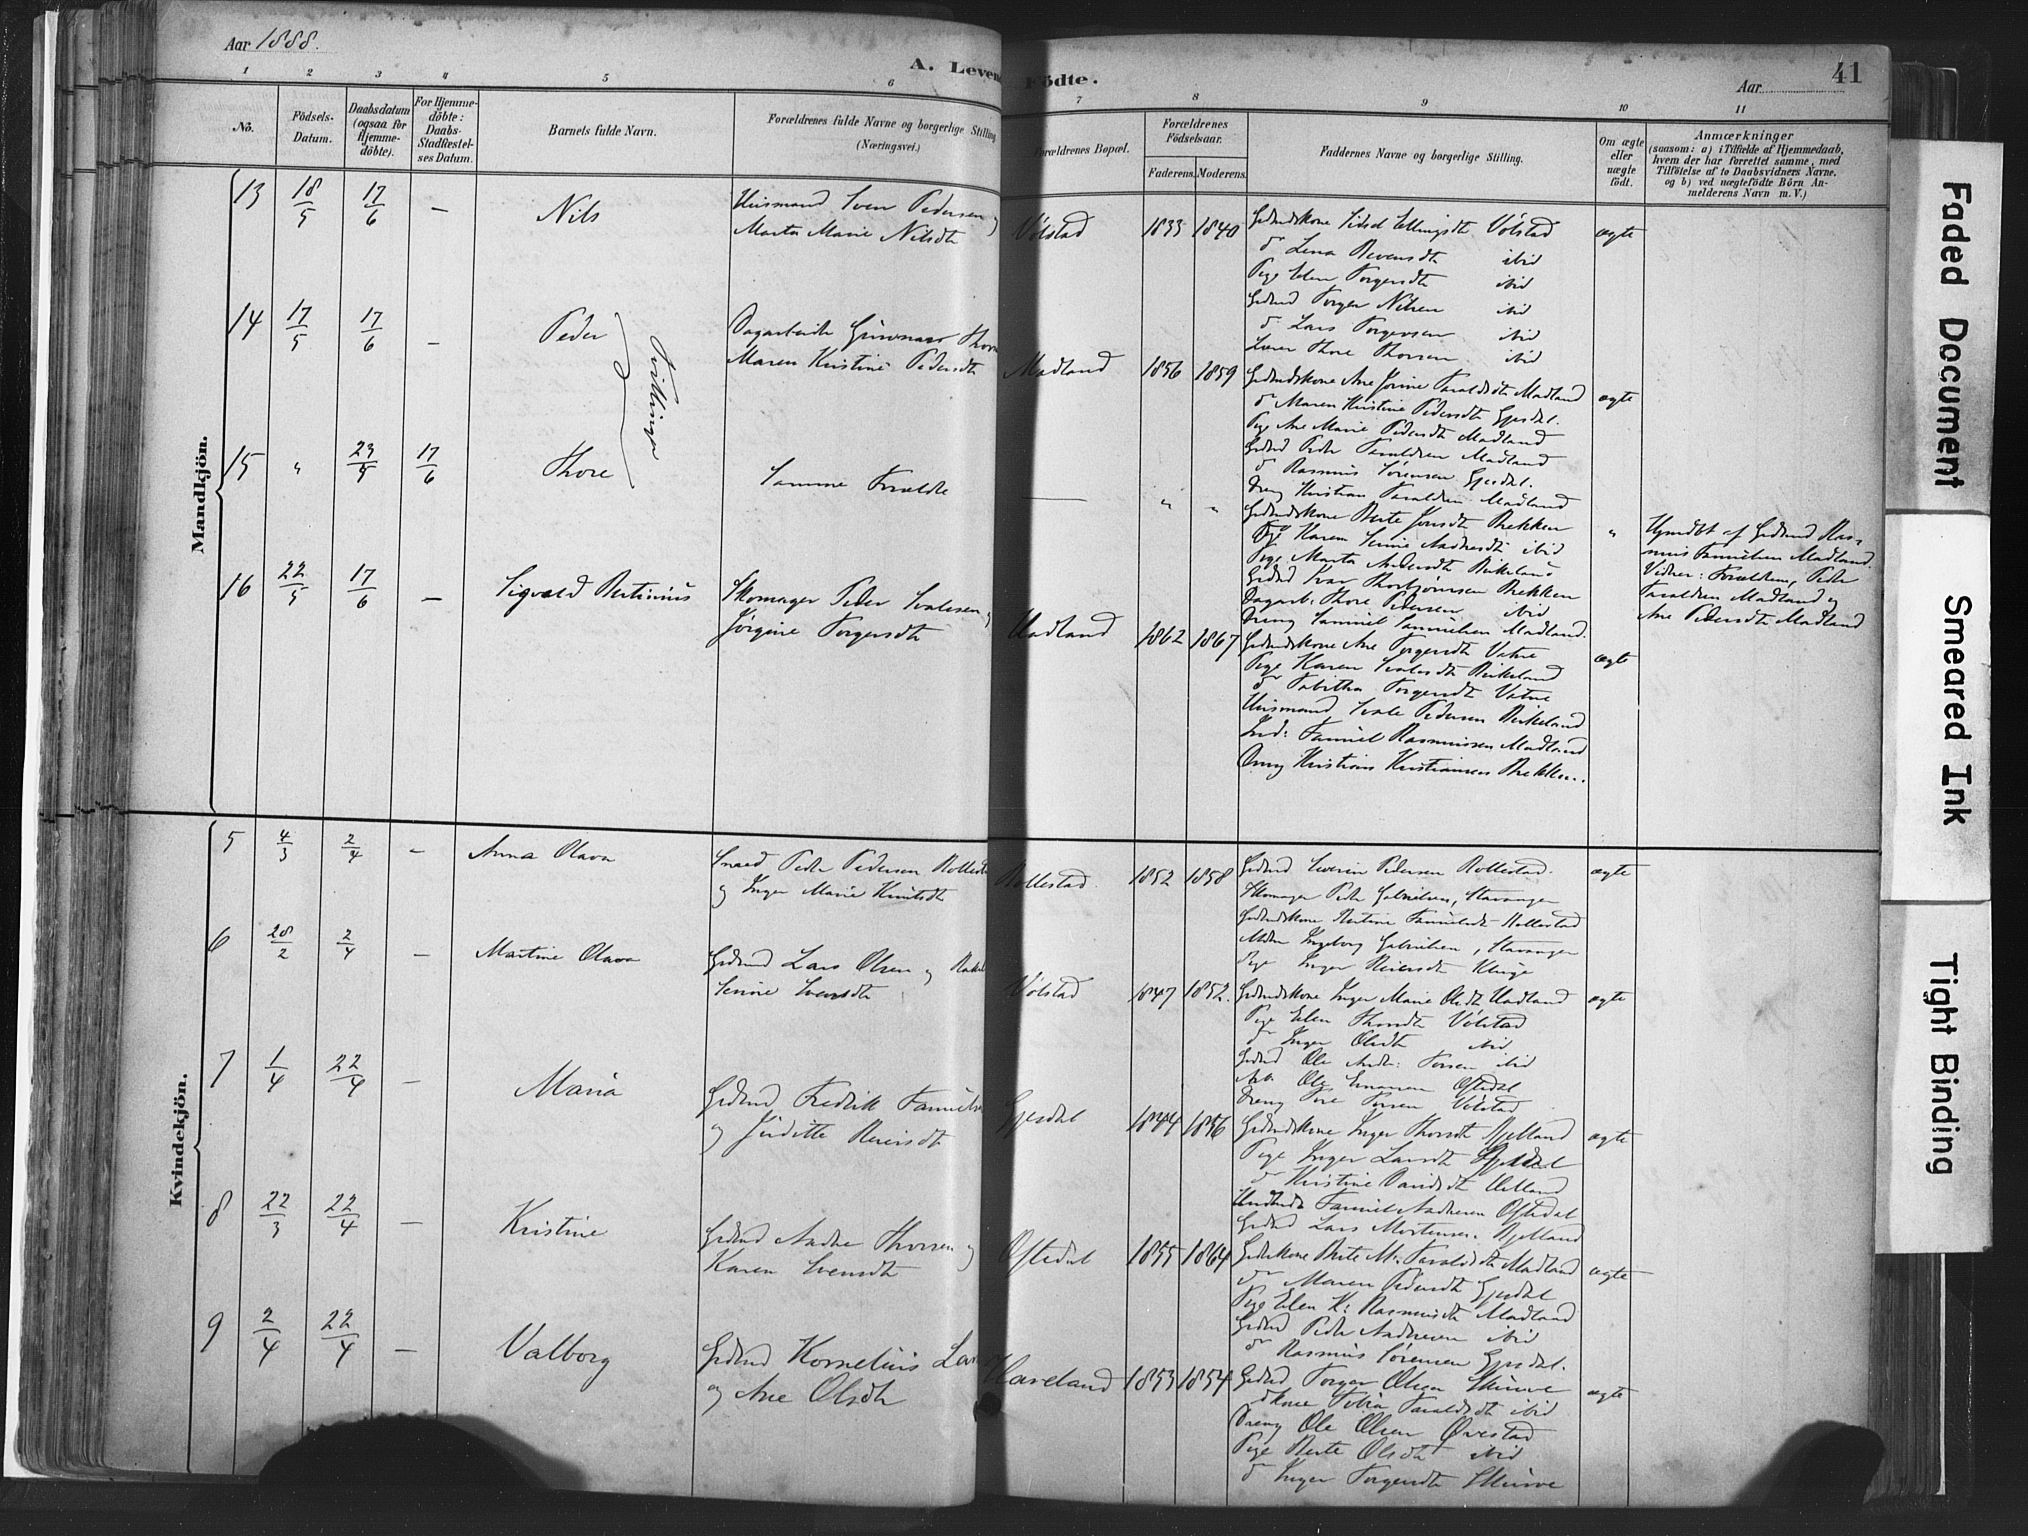 Aar 1888.
A. Levende Födte.
Aar
41
1 2 3 4 5 6 7 8 9 10 11
No.
Födsels-Datum.
Daabsdatum (ogsaa for Hjemme-döbte).
For Hjemme-döbte: Daabs-Stadfæstel-ses Datum.
Barnets fulde Navn.
Forældrenes fulde Navne og borgerlige Stilling (Næringsvei.)
Forældrenes Bopæl.
Forældrenes Födselsaar.
Faderens. Moderens.
Faddernes Navne og borgerlige Stilling.
Om ægte eller uægte födt.
Anmærkninger
(saasom: a) i Tilfælde af Hjemmedaab,
hvem der har forrettet samme, med
Tilföielse af to Daabsvidners Navne,
og b) ved uægtefödte Börn An-
melderens Navn m. V.)
Mandkjön.
13 18/5 17/6 — Nils
Huusmand Sven Pedersen og
Marta Marie Nilsdt
Vølstad 1833 1840
Gdmdskone Sidsel Ellingsdt Vølstad
do Lena ibid
Pige Elen Torgersdt ibid
Gdmd Torger Nilsen ibid
do Lars Torgersen ibid
Thore Thorsen ibid
ægte
14 17/5 17/6 — Peder
Tvillinger
Dagarbeider Gunnar
Maren Kristine Pedersdt
Madland 1856 1859
Gdmdskone Ane Taraldsdt Madland
do Maren Kristine Pedersdt Gjesdal.
Pige Ane Marie Pedersdt Madland
Gdmd Peder Taraldsen Madland
do Rasmus Sørensen Gjesdal.
Dreng Kristian Taraldsen Madland
ægte
15 " 23/5 17/6 Thore
Samme Forældre
— " "
Gdmdskone Berte Brekken
Pige Karen ibid
Pige Marta Birkeland
Gdmd Ivar Thorbjørnsen Brekken
Dagarb. Thore Pedersen ibid
Dreng Samuel Samuelsen Madland.
"
Hjmdbt af Gdmd Ras-
mus Samuelsen Madland.
Vidner: Forældrene, Peder
Taraldsen Madland og
Ane Pedersdt Madland
16 22/5 17/6 — Sigvald Bertinius
Skomager Peder Svalesen og
Jørgine Torgersdt
Uadland 1862 1867
Gdmdskone Ane Torgersdt Vatne
Pige Karen Svalesdt Birkeland
do Tabitha Torgersdt Vatne
Huusmand Svale Pedersen Birkeland
Ind: Samuel Rasmussen Madland
Dreng Kristian Kristiansen Brekken.
ægte
Kvindekjön.
5 4/3 2/4 — Anna Olava
Smed Peder Pedersen
og Inger Marie Knutsdt
Rollestad 1852 1858
Gdmd Severin Pedersen Rollestad.
Skomager Peder Gabrielsen, Stavanger
Gdmdskone Bertine Samuelsdt Rollestad
Ingeborg Gabrielsen, Stavanger
Pige Inger
ægte
6 28/2 2/4 — Martine Olava
Gdmd Lars Olsen og
Serine Svensdt
Vølstad 1847 1852.
Gdmdskone Inger Marie Olsdt Uadland
Pige Elen Thorsdt Vølstad
do Inger Olsdt ibid
Gdmd Ole ibid
Ole Oftedal
Dreng Tore Torsen Vølstad
ægte
7 1/4 22/4 — Maria
Gdmd Fredrik
og Juditte Reiersdt
Gjesdal 1844 1856
Gdmdskone Inger Thorsdt Fjelland
Pige Inger Larsdt Gjesdal
do Kristine Davidsdt
Samuel Andersen Oftedal
Gdmd Lars Mortensen
ægte
8 22/3 22/4 — Kristine
Gdmd Andre Thorsen og
Karen Svensdt
Oftedal 1855 1864
Gdmskone Berte M. Taraldsdt Madland
do Maren Pedersdt Gjesdal
Pige Elen K. Rasmusdt Madland
Gdmd Peder Andersen ibid
do Rasmus Sørensen Gjesdal.
ægte
9 2/4 22/4 — Valborg
Gdmd Kornelius
og Ane Olsdt
Haveland 1853 1854
Gdmd Torger Olsen Skurve
dkone Tobia Taraldsdt ibid
Dreng Ole Olsen Øvestad
Pige Berte Olsdt ibid
do Inger Torgersdt Skurve
ægte
Faded Document
Smeared Ink
Tight Binding